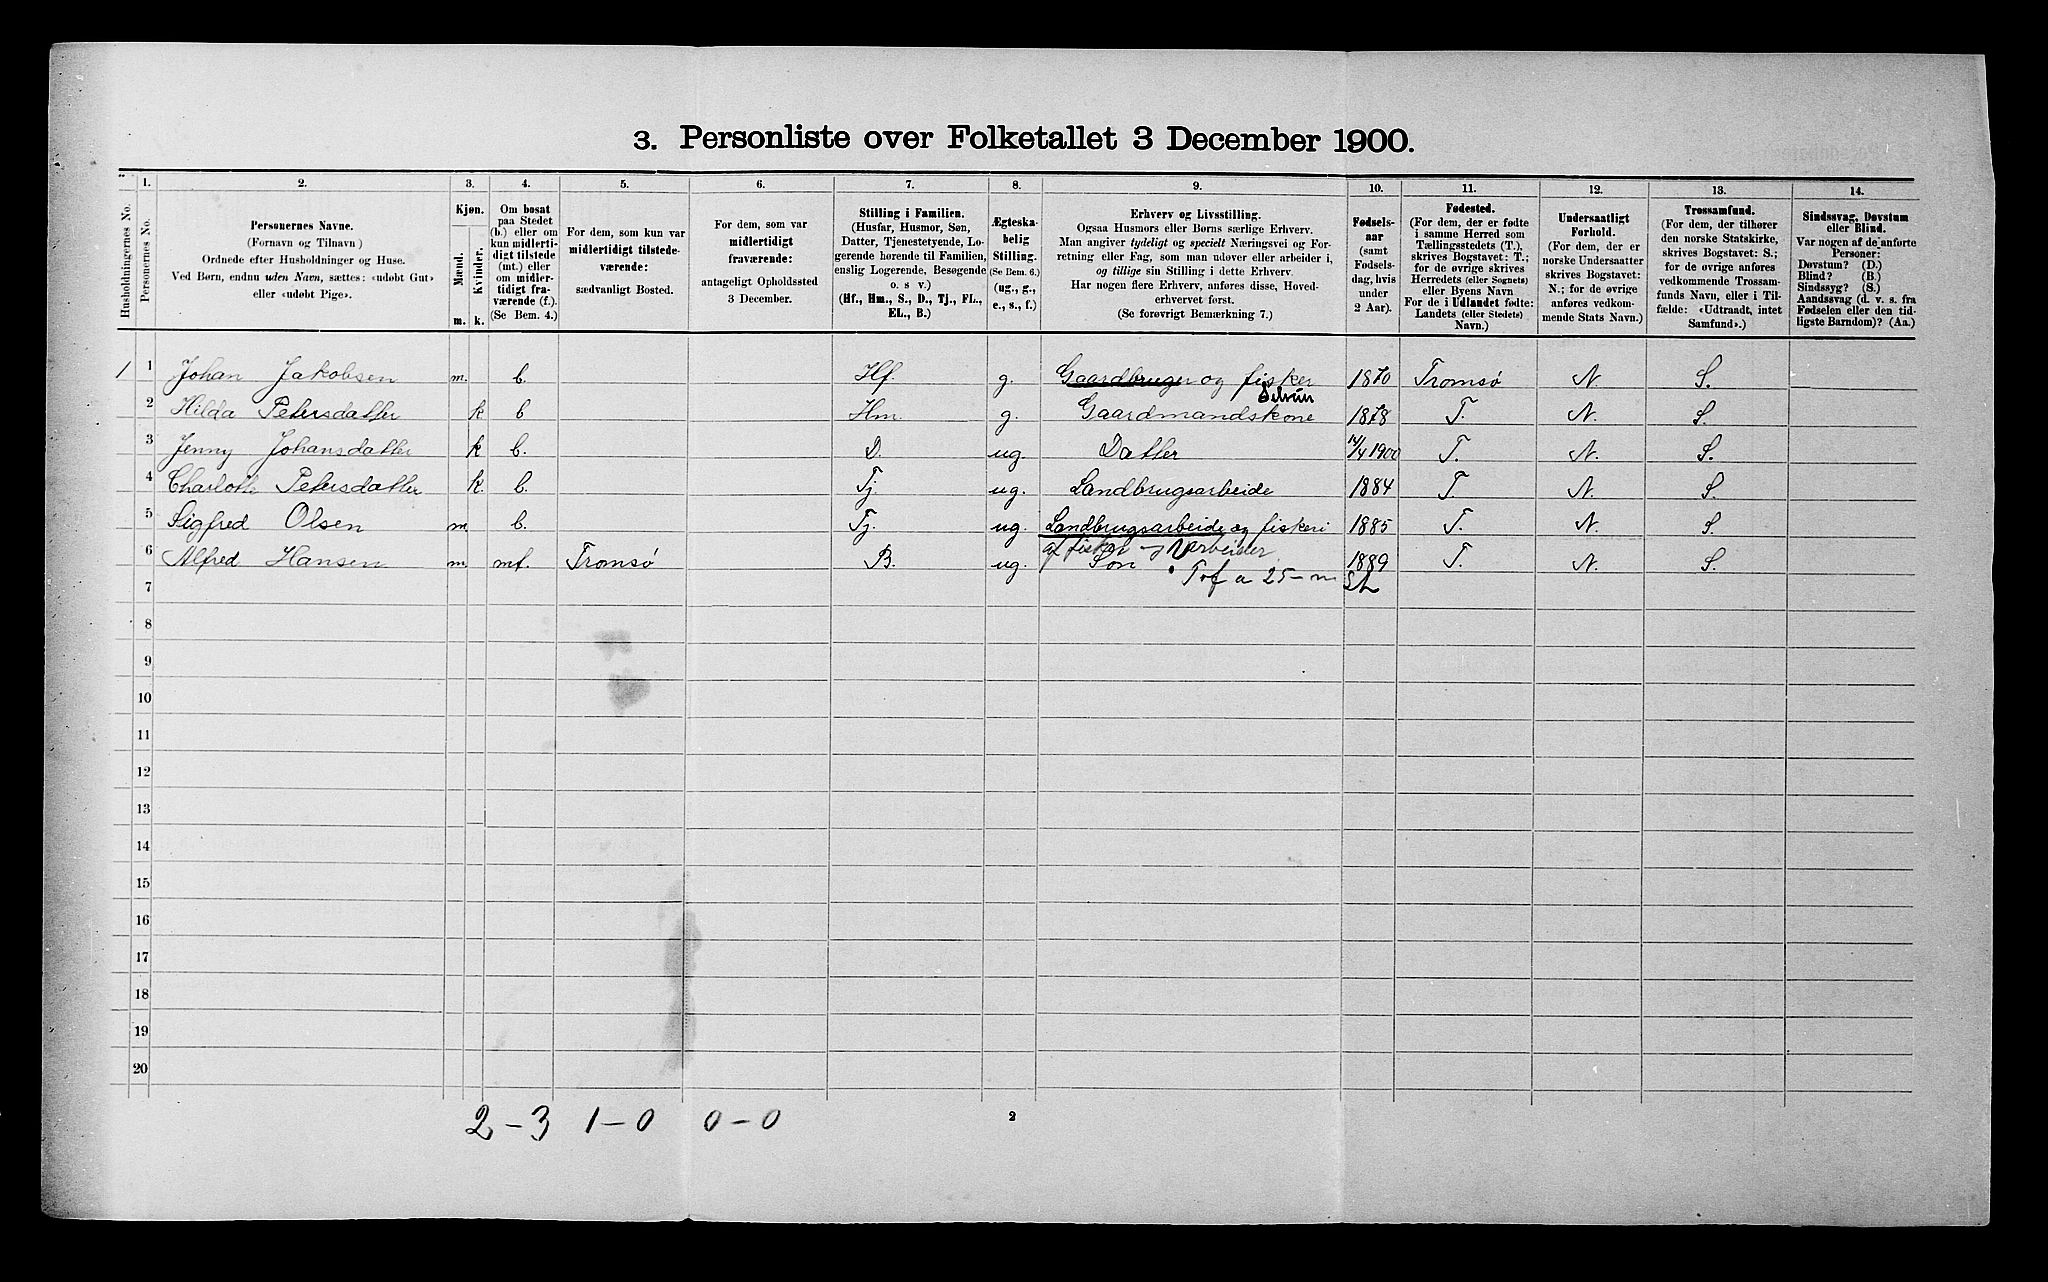 3. Personliste over Folketallet 3 December 1900.
Husholdningernes No.
1. Personernes No.
2. Personernes Navne.
(Fornavn og Tilnavn)
Ordnede efter Husholdninger og Huse.
Ved Børn, endnu uden Navn, sættes: «udøbt Gut»
eller «udøbt Pige».
3. Kjøn.
Mænd. Kvinder.
m. k.
4. Om bosat
paa Stedet
(b.) eller om
kun midlerti-
digt tilstede
(mt.) eller
om midler-
tidigt fra-
værende (f.).
(Se Bem. 4.)
5. For dem, som kun var
midlertidigt tilstede-
værende:
sædvanligt Bosted.
6. For dem, som var
midlertidigt
fraværende:
antageligt Opholdssted
3 December.
7. Stilling i Familien.
(Husfar, Husmor, Søn,
Datter, Tjenestetyende, Lo-
gerende hørende til Familien,
enslig Logerende, Besøgende
o. s v.)
(Hf., Hm., S., D., Tj., FL.,
EL., B.)
8. Ægteska-
belig
Stilling.
(Se Bem. 6.)
(ug., g.,
e., s., f.)
9. Erhverv og Livsstilling.
Ogsaa Husmors eller Børns særlige Erhverv.
Man angiver tydeligt og specielt Næringsvei og For-
retning eller Fag, som man udøver eller arbeider i,
og tillige sin Stilling i dette Erhverv.
Har nogen flere Erhverv, anføres disse, Hoved-
erhvervet først.
(Se forøvrigt Bemærkning 7.)
10. Fødsels-
aar
(samt
Fødsels-
dag, hvis
under
2 Aar).
11. Fødested.
(For dem, der er fødte
i samme Herred som
Tællingsstedets (T.),
skrives Bogstavet: T.;
for de øvrige skrives
Herredets (eller Sognets)
eller Byens Navn
For de i Udlandet fødte:
Landets (eller Stedets)
Navn.)
12. Undersaatligt
Forhold.
(For dem, der er
norske Undersaatter
skrives Bogstavet:
N.; for de øvrige
anføres vedkom-
mende Stats Navn.)
13. Trossamfund.
(For dem, der tilhører
den norske Statskirke,
skrives Bogstavet: S.;
for de øvrige anføres
vedkommende Trossam-
funds Navn, eller i Til-
fælde: «Udtraadt, intet
Samfund».)
14. Sindssvag, Døvstum
eller Blind.
Var nogen af de anførte
Personer:
Døvstum? (D.)
Blind? (B.)
Sindssyg? (S.)
Aandssvag (d. v. s. fra
Fødselen eller den tid-
ligste Barndom)? (Aa.)
1 1 Johan Jakobsen m. b. Hf. g. Gaardbruger og fisker 1870 Tromsø N. S.
Selvsm
2 Hilda Petersdatter k b Hm. g. Gaardmandskone 1878 T. N. S.
3 Jenny Johansdatter k b. D. ug. Datter 14/4 1900 T. N. S.
4 Charlotte Petersdatter k. b. Tj. ug. Landbrugsarbeide 1884 T N. S.
5 Sigfred Olsen m. b. Tj. ug. Landbrugsarbeide og fiskeri 1885 T. N. S.
af fisker og arbeider
6 Alfred Hansen m. mt. Tromsø B. ug. Søn 1889 T. N. S.
7
8
9
10
11
12
13
14
15
16
17
18
19
20
2 - 3 1 - 0 0 - 0
2